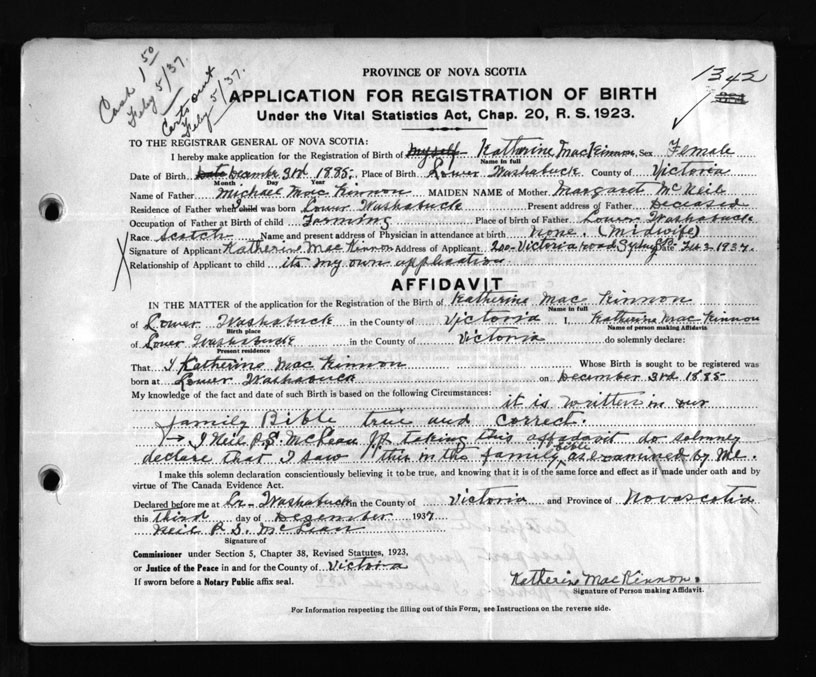 Cash 1 50
Feby 5/37.
Certs out
Feby 5/37.
1342
PROVINCE OF NOVA SCOTIA
APPLICATION FOR REGISTRATION OF BIRTH
Under the Vital Statistics Act, Chap. 20, R. S. 1923.
TO THE REGISTRAR GENERAL OF NOVA SCOTIA:
I hereby make application for the Registration of Birth of myself Katherine MacKinnon Sex Female
Name in full
Date of Birth December 3rd 1885. Place of Birth Lower Washabuck County of Victoria
Month Day Year
Name of Father Michael Mac Kinnon MAIDEN NAME of Mother Margaret McNeil
Residence of Father when child was born Lower Washabuck Present address of Father Deceased
Occupation of Father at Birth of child Farming Place of birth of Father Lower Washabuck
Race Scotch Name and present address of Physician in attendance at birth none. (Midwife)
Signature of Applicant Katherine Mac Kinnon Address of Applicant 200 Victoria road Sydney Date Feb 3 1937.
Relationship of Applicant to child its my own application
AFFIDAVIT
IN THE MATTER of the application for the Registration of the Birth of Katherine Mac Kinnon
Name in full
of Lower Washabuck in the County of Victoria I, Katherine Mac Kinnon
Birth place Name of person making Affidavit
of Lower Washabucke in the County of Victoria do solemnly declare:
Present residence
That I Katherine Mac Kinnon Whose Birth is sought to be registered was
born at Lower Washabuck on December 3rd 1885
My knowledge of the fact and date of such Birth is based on the following Circumstances:
it is written in our
family Bible true and correct.
I Neil P.S. McLean JP taking this affadavit do solemney
declare that I saw this in the family Bible as examined by Me.
I make this solemn declaration conscientiously believing it to be true, and knowing that it is of the same force and effect as if made under oath and by
virtue of The Canada Evidence Act.
Declared before me at Lr. Washabuck in the County of Victoria and Province of Novascotia
this third day of Desember 1937
Neil P. S. McLean
Signature of
Commissioner under Section 5, Chapter 38, Revised Statutes, 1923,
or Justice of the Peace in and for the County of Victoria
If sworn before a Notary Public affix seal.
Katherine Mac Kinnon.
Signature of Person making Affidavit.
For Information respecting the filling out of this Form, see Instructions on the reverse side.